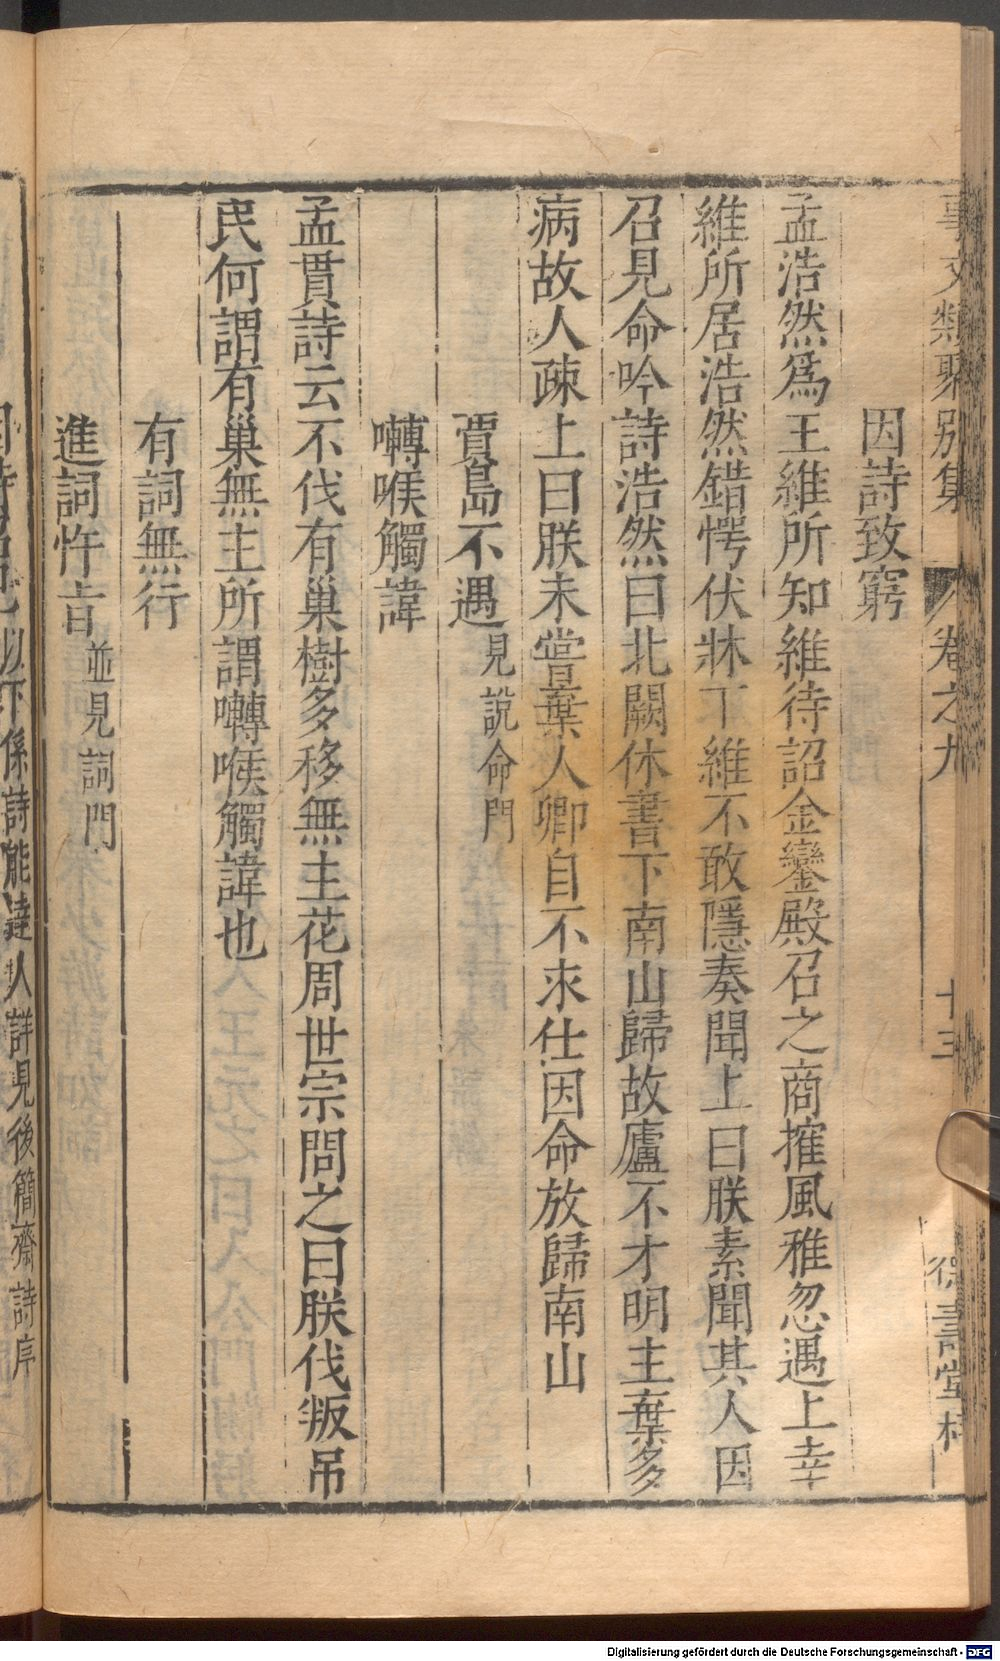 事文類聚別集 卷之九 十三 德壽堂梓
因詩致窮
孟浩然爲王維所知維待詔金鑾殿召之商搉風雅忽遇上幸
維所居浩然錯愕伏牀下維不敢隱奏聞上曰朕素聞其人因
召見命吟詩浩然曰北闕休書下南山歸故廬不才明主棄多
病故人疎上曰朕未嘗棄人卿自不求仕因命放歸南山
賈島不遇見說命門
囀喉觸諱
孟貫詩云不伐有巢樹多移無主花周世宗問之曰朕伐叛吊
民何謂有巢無主所謂囀喉觸諱也
有詞無行
進詞忤旨並見詞門
以下係詩能達人詳見後簡齋詩序
Digitalisierung gefördert durch die Deutsche Forschungsgemeinschaft - DFG